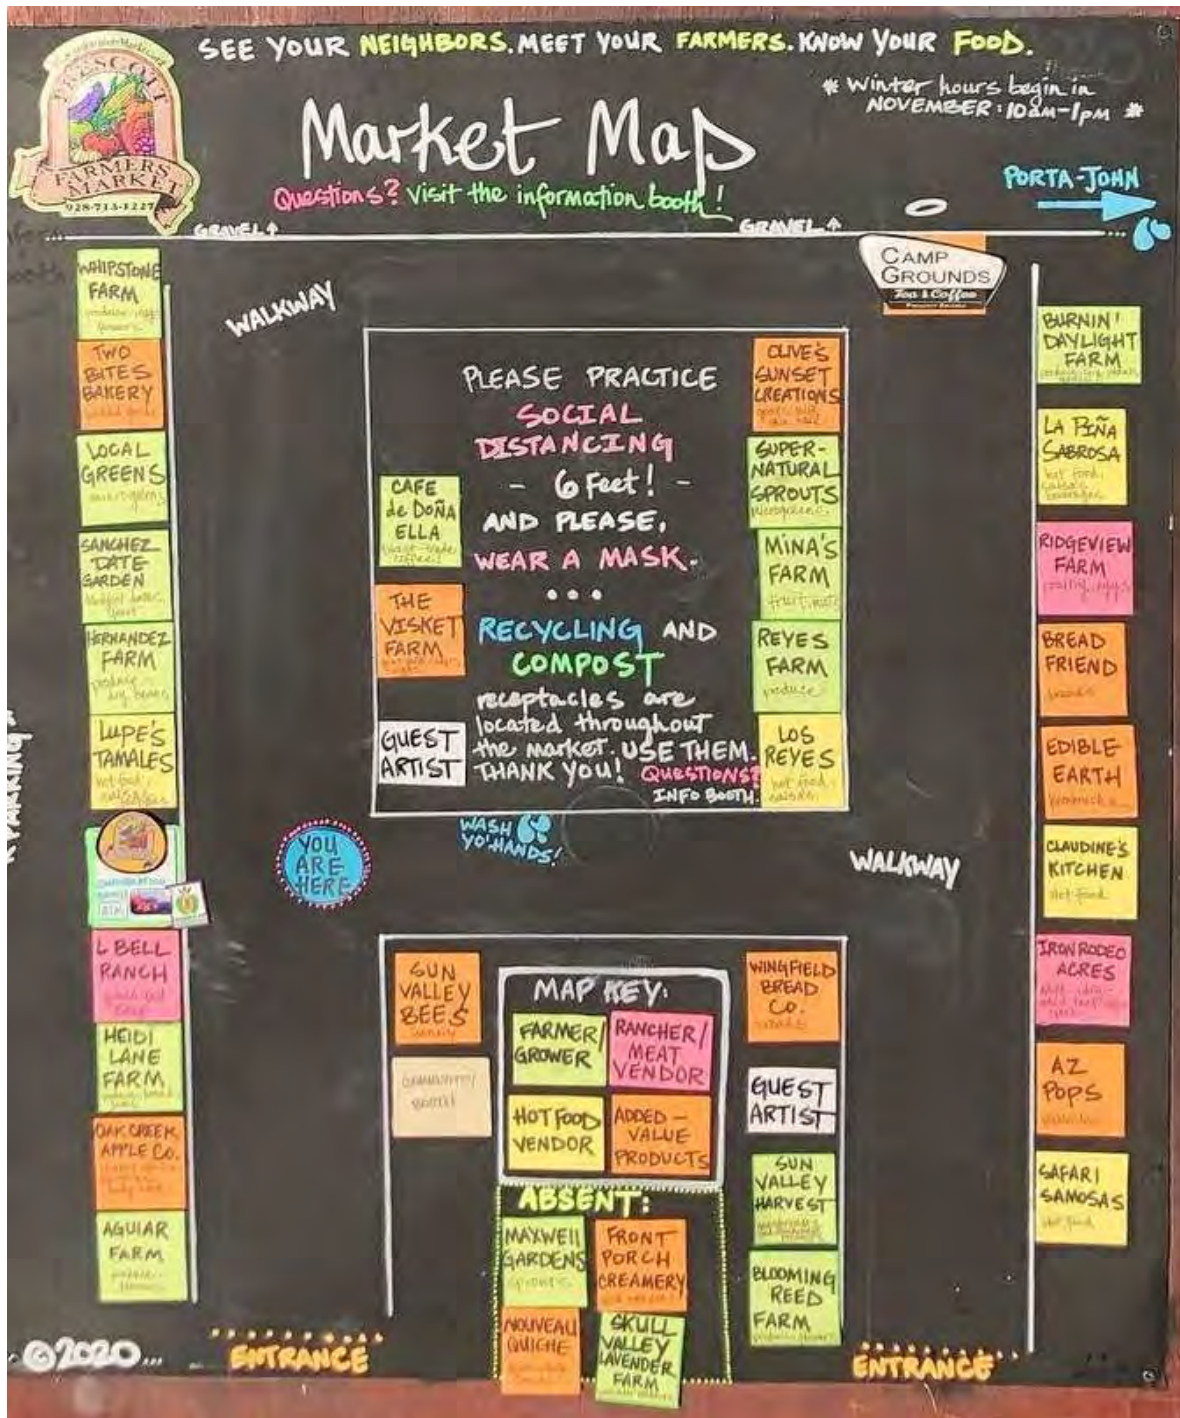 SEE YOUR NEIGHBORS. MEET YOUR FARMERS. KNOW YOUR FOOD.
PRESCOTT
FARMERS
MARKET
928-713-1227
* Winter hours begin in
NOVEMBER: 10am-1pm *
Market Map
Questions? Visit the information booth!
PORTA-JOHN
GRAVEL ↑
GRAVEL ↑
CAMP
GROUNDS
Tea & Coffee
WALKWAY
WHIPSTONE
FARM
TWO
BITES
BAKERY
LOCAL
GREENS
microgreens
SANCHEZ
DATE
GARDEN
HERNANDEZ
FARM
produce
dry beans
LUPE'S
TAMALES
hot food,
PARKING
ATM
L BELL
RANCH
HEIDI
LANE
FARM
OAK CREEK
APPLE CO.
AGUIAR
FARM
YOU
ARE
HERE
PLEASE PRACTICE
SOCIAL
DISTANCING
- 6 Feet! -
AND PLEASE,
WEAR A MASK.
...
RECYCLING AND
COMPOST
receptacles are
located throughout
the market. USE THEM.
THANK YOU! QUESTIONS?
INFO BOOTH.
CAFE
de DOÑA
ELLA
THE
VISKET
FARM
GUEST
ARTIST
OLIVE'S
SUNSET
CREATIONS
SUPER-
NATURAL
SPROUTS
microgreens
MINA'S
FARM
REYES
FARM
produce
LOS
REYES
hot food,
salsas
WASH
YO' HANDS!
WALKWAY
BURNIN'
DAYLIGHT
FARM
LA PIÑA
SABROSA
hot food,
salsas
beverages
RIDGEVIEW
FARM
poultry, eggs
BREAD
FRIEND
breads
EDIBLE
EARTH
CLAUDINE'S
KITCHEN
Hot food
IRON RODEO
ACRES
AZ
POPS
SAFARI
SAMOSAS
Hot food
SUN
VALLEY
BEES
honey
COMMUNITY
BOOTH
MAP KEY:
FARMER/
GROWER
RANCHER/
MEAT
VENDOR
HOT FOOD
VENDOR
ADDED-
VALUE
PRODUCTS
ABSENT:
MAXWELL
GARDENS
sprouts
FRONT
PORCH
CREAMERY
NOUVEAU
QUICHE
SKULL
VALLEY
LAVENDER
FARM
WINGFIELD
BREAD
CO.
breads
GUEST
ARTIST
SUN
VALLEY
HARVEST
BLOOMING
REED
FARM
©2020...
ENTRANCE
ENTRANCE